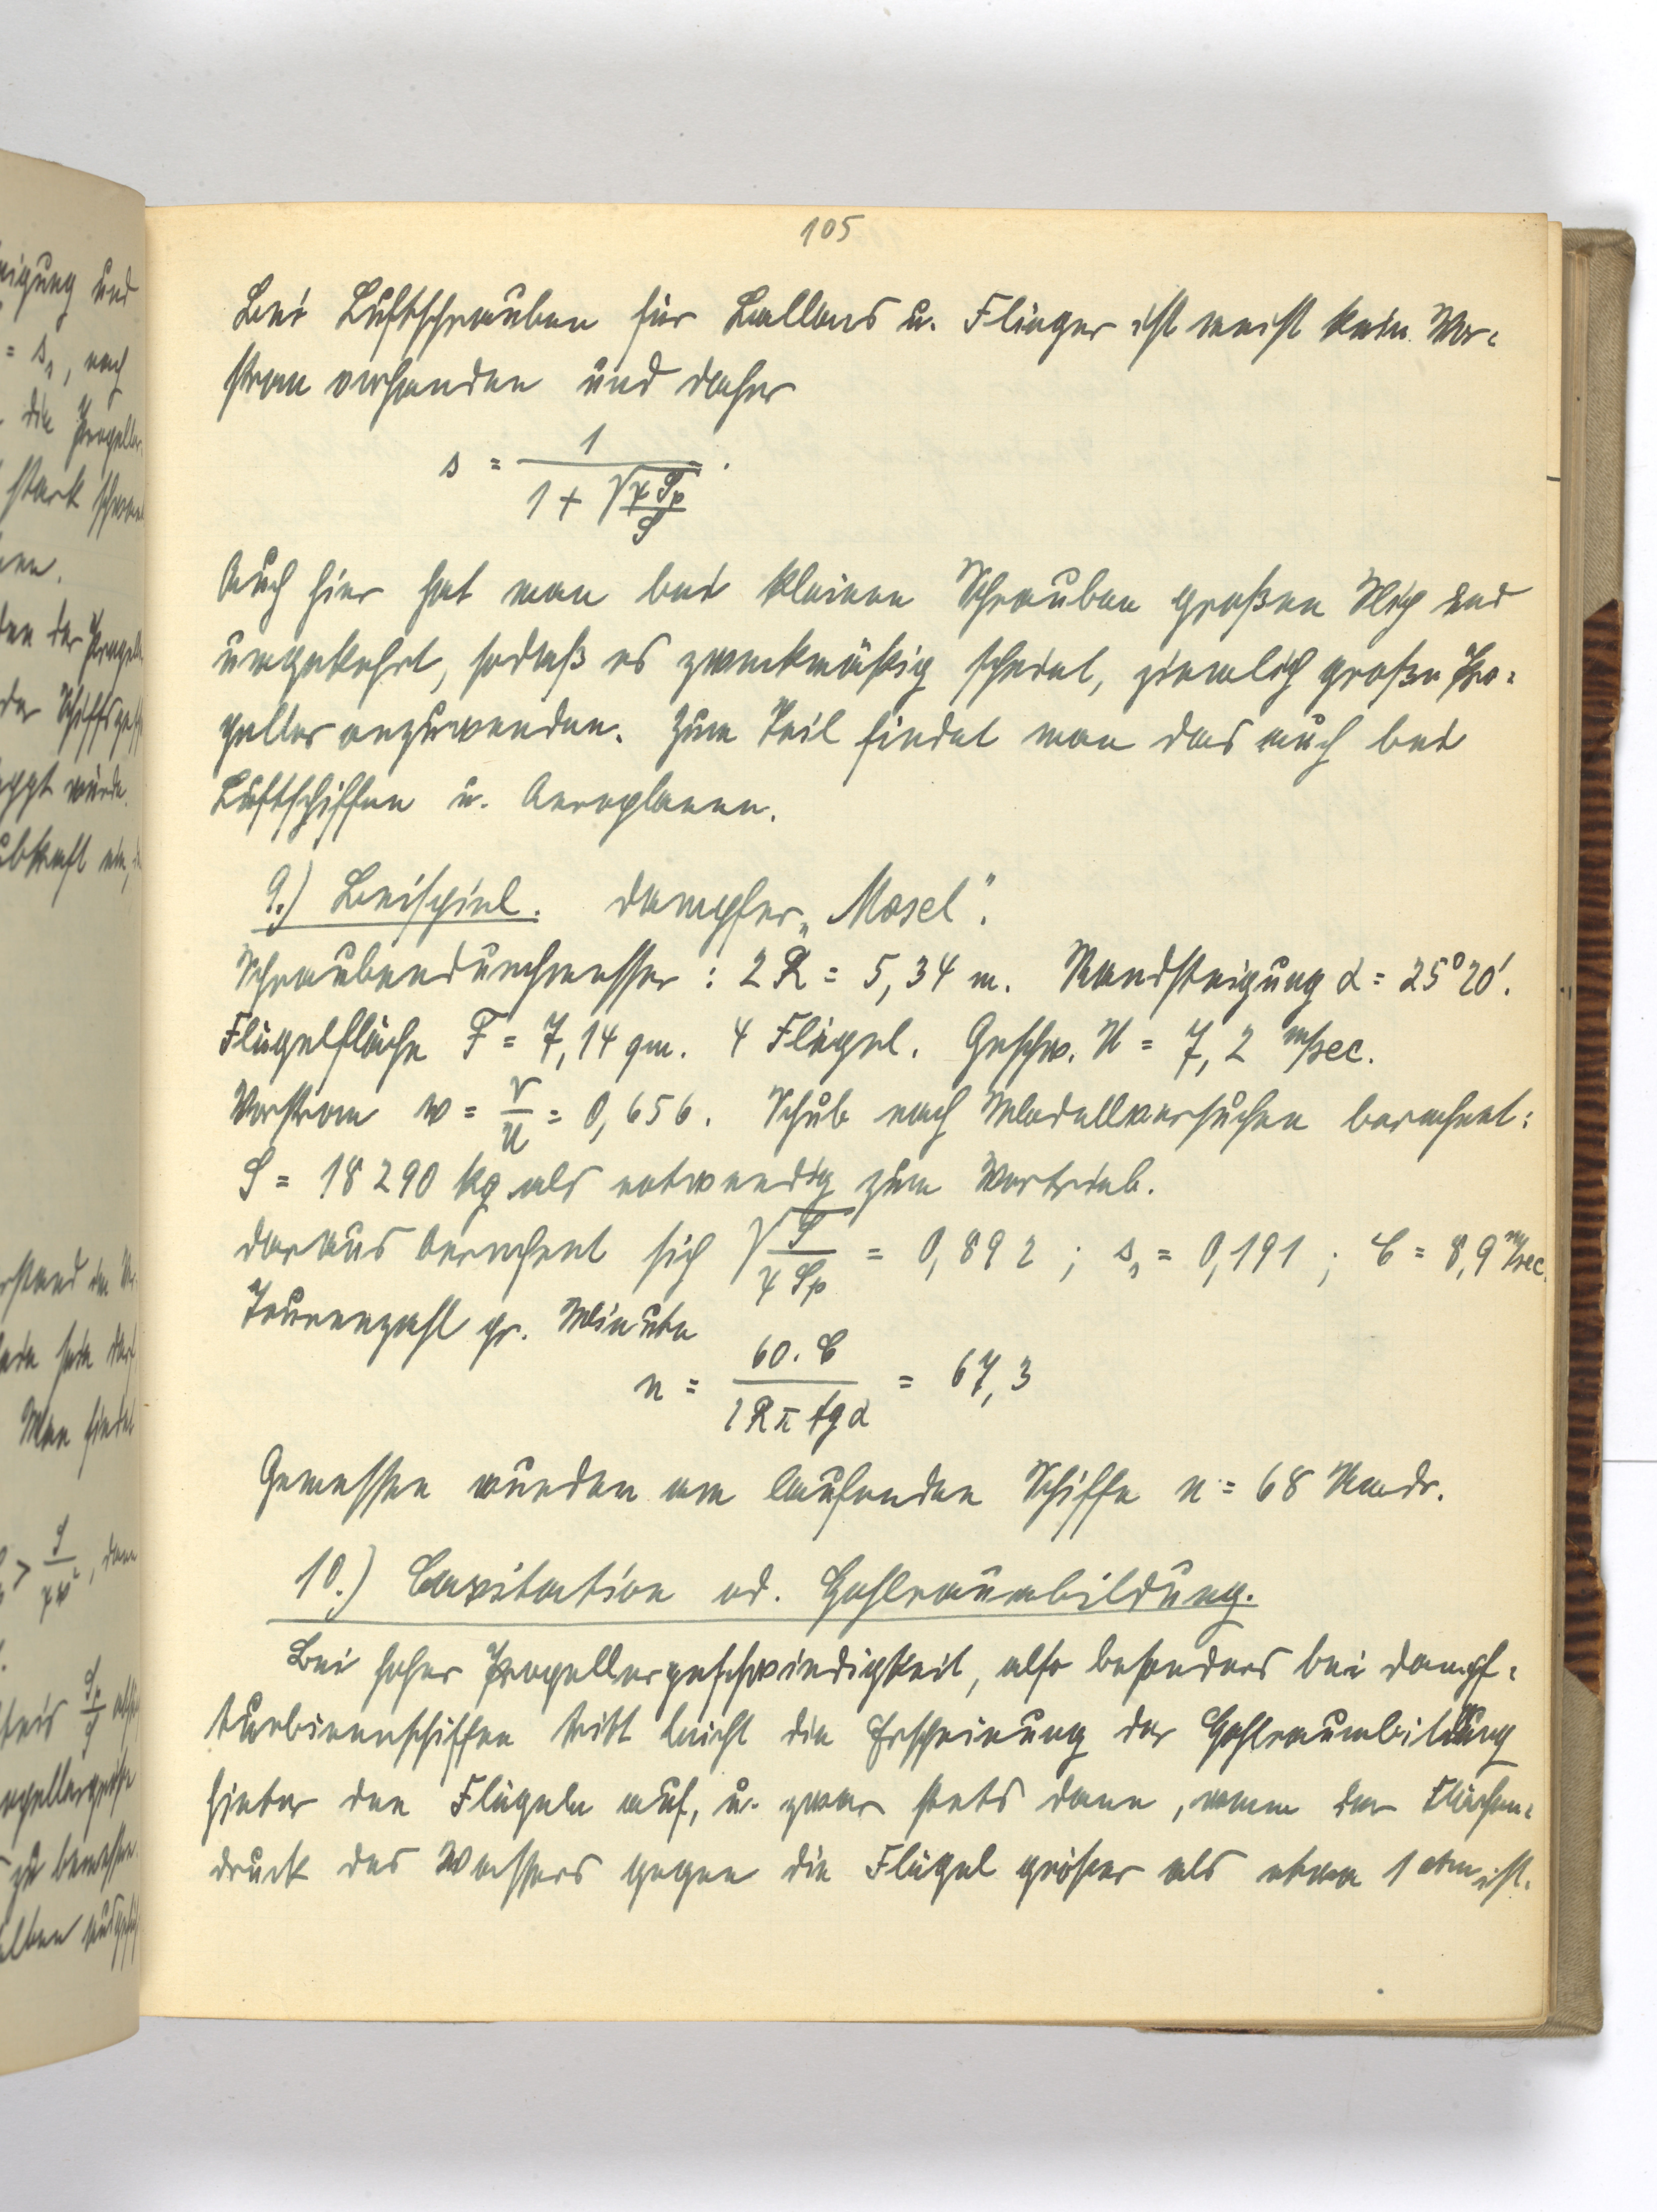 105
Bei Luftschrauben für Ballons u. Flieger ist meist kein Vor-
strom vorhanden und daher
s = 1 / (1 + √(γ S_p / S)).
Auch hier hat man bei kleinen Schrauben großen Slip und
umgekehrt, sodaß es zweckmäßig scheint, ziemlich große Pro-
peller anzuwenden. Zum Teil findet man das auch bei
Luftschiffen u. Aeroplanen.
9.) Beispiel. Dampfer „Mosel".
Schraubendurchmesser: 2R = 5,34 m. Randsteigung α = 25° 20'.
Flügelfläche F = 7,14 qm. 4 Flügel. Geschw. U = 7,2 m/sec.
Vorstrom w = v/U = 0,656. Schub nach Modellversuchen berechnet:
S = 18 290 kg als notwendig zum Vortrieb.
Daraus berechnet sich √(S / γ S_p) = 0,892 ; s₁ = 0,191 ; C = 8,9 m/sec.
Tourenzahl pr. Minute
n = 60. C / 2Rπ tg α = 67,3
Gemessen wurden am laufenden Schiffe n = 68 Umdr.
10.) Cavitation od. Hohlraumbildung.
Bei hoher Propellergeschwindigkeit, also besonders bei Dampf-
turbinenschiffen tritt leicht die Erscheinung der Hohlraumbildung
hinter den Flügeln auf, u. zwar stets dann, wenn der Flächen-
druck des Wassers gegen die Flügel größer als etwa 1 atm ist.
nigung und
= s₁, nach
die Propeller
stark
den der
der
würde.
Man findet
> S / γ w², dann
zu bemessen